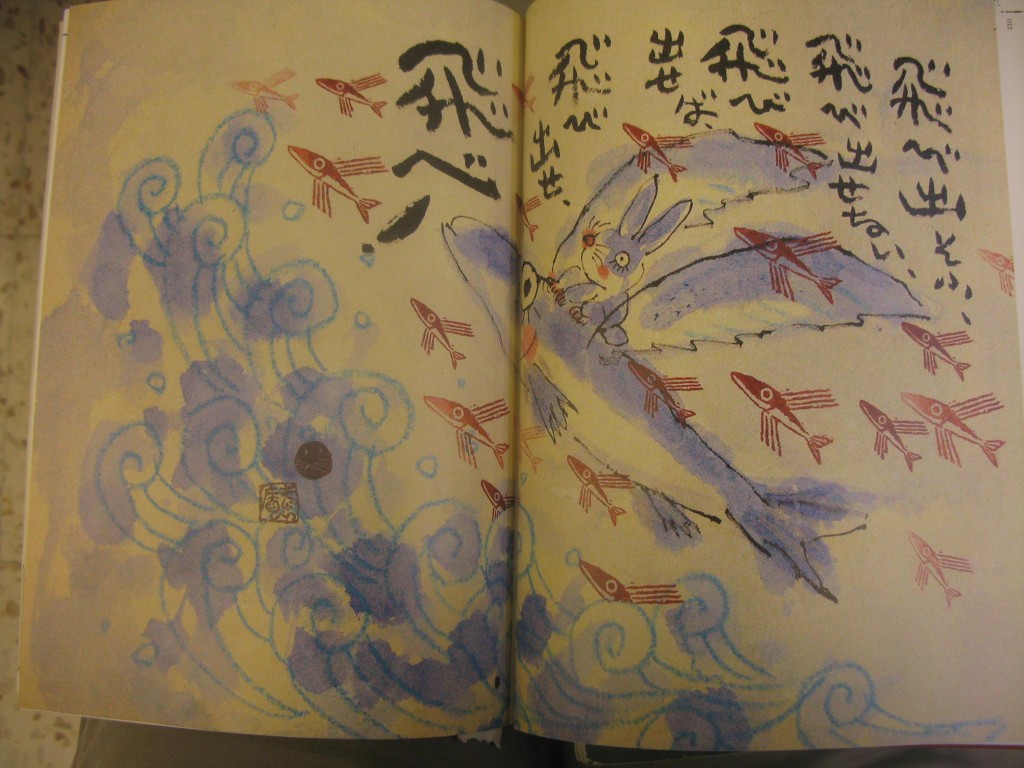 飛び出そう、
飛び出せない、
飛び出せば、
飛び出せ、
飛べ!